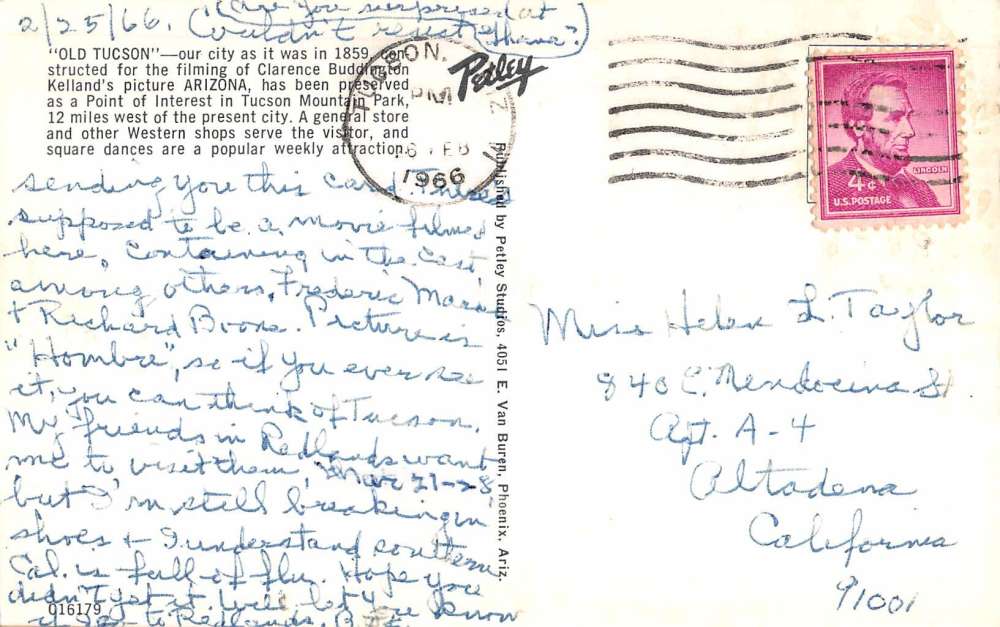 2/25/66. (Are you surprised at
Couldn't resist
"OLD TUCSON"—our city as it was in 1859, con-
structed for the filming of Clarence Buddington
Kelland's picture ARIZONA, has been preserved
as a Point of Interest in Tucson Mountain Park,
12 miles west of the present city. A general store
and other Western shops serve the visitor, and
square dances are a popular weekly attraction.
Petley
TUCSON,
PM
FEB
1966
sending you this card. There's
supposed to be a movie filmed
here, containing in the cast
among others, Frederic
+ Richard Boone. Picture is
"Hombre", so if you ever see
it, you can think of Tucson.
My friends in Redlands want
me to visit them Mar 21-28
but I'm still breaking in
shoes + I understand southern
Cal. is full of flu. Hope you
didn't get it. Will let you know
if I go to Redlands.
016179
Published by Petley Studios, 4051 E. Van Buren, Phoenix, Ariz.
LINCOLN
4¢
U.S. POSTAGE
Miss Helen L. Taylor
840 E. Mendocina St.
Apt. A-4
Altadena
California
91001